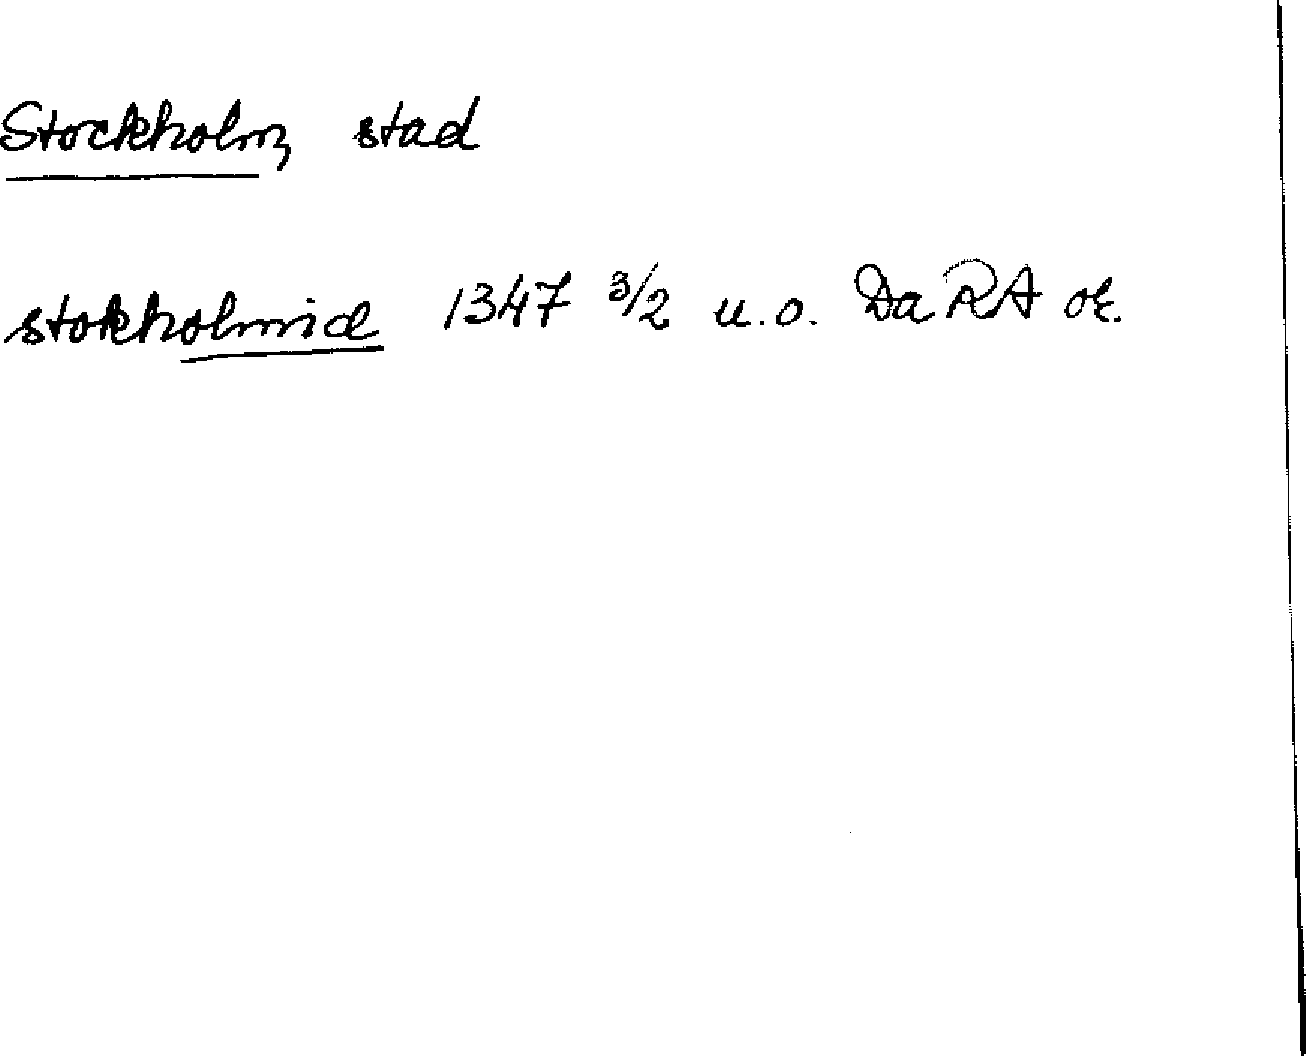 Stockholm, stad
stokholmie 1347 3/2 u.o. Da RA or.